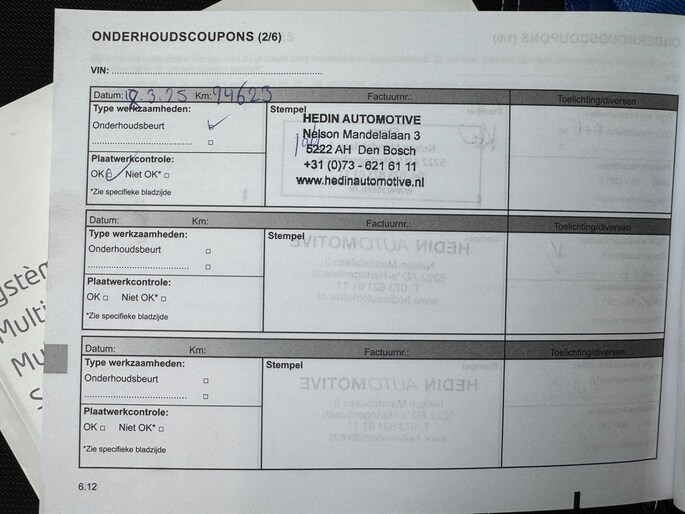 ONDERHOUDSCOUPONS (2/6)
VIN: ........................................................................
Datum: 18.3.25 Km: 94623 Factuurnr.: Toelichting/diversen
Type werkzaamheden:
Onderhoudsbeurt
Plaatwerkcontrole:
OK Niet OK* □
*Zie specifieke bladzijde
Stempel
HEDIN AUTOMOTIVE
Nelson Mandelalaan 3
5222 AH Den Bosch
+31 (0)73 - 621 61 11
www.hedinautomotive.nl
Datum: Km: Factuurnr.: Toelichting/diversen
Type werkzaamheden:
Onderhoudsbeurt □
........................................ □
Plaatwerkcontrole:
OK □ Niet OK* □
*Zie specifieke bladzijde
Stempel
Datum: Km: Factuurnr.: Toelichting/diversen
Type werkzaamheden:
Onderhoudsbeurt □
........................................ □
Plaatwerkcontrole:
OK □ Niet OK* □
*Zie specifieke bladzijde
Stempel
6.12
Multi